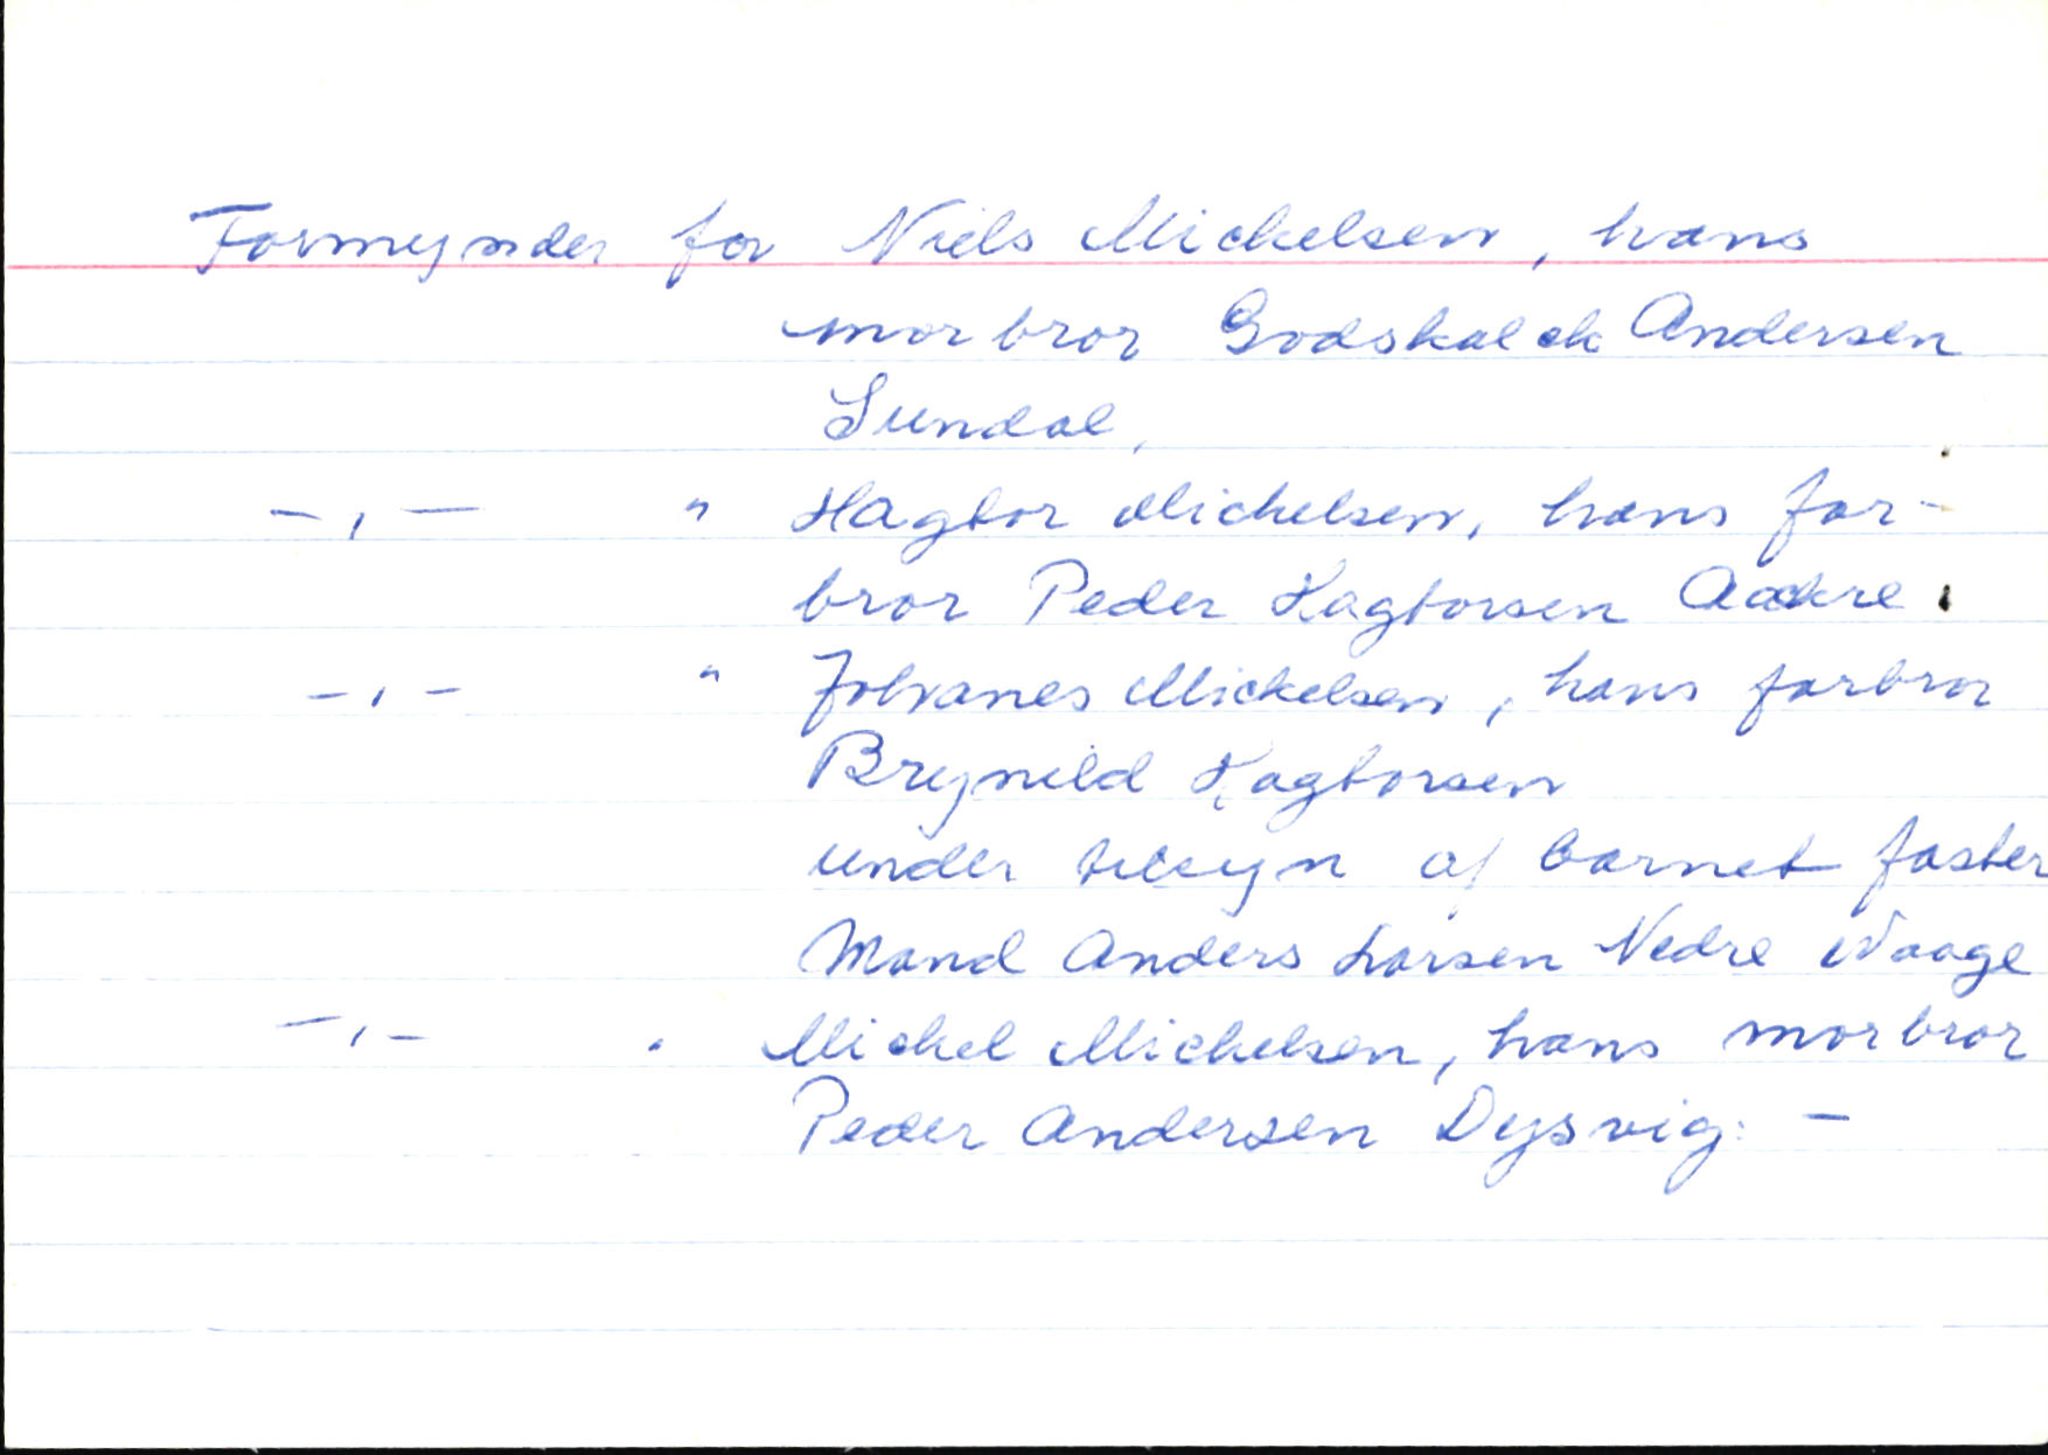 Formynder for Niels Mickelsen, hans
morbror Godskalck Andersen
Sundal,
— , — " Hagbor Michelsen, hans far-
bror Peder Hagborsen Aakre.
— , — " Johanes Mickelsen, hans farbror
Brynild Hagborsen
under tilsyn af barnet faster
Mand Anders Larsen Nedre Waage
— , — " Mickel Michelsen, hans morbror
Peder Andersen Dysvig: —